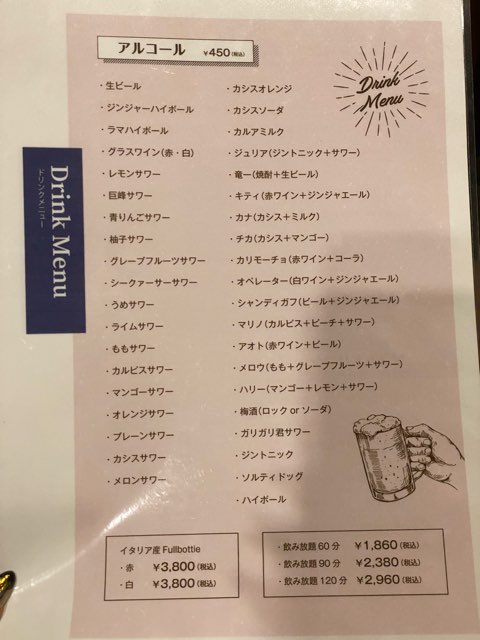 アルコール ¥450(税込)
Drink Menu
Drink Menu
ドリンクメニュー
・生ビール
・ジンジャーハイボール
・ラマハイボール
・グラスワイン(赤・白)
・レモンサワー
・巨峰サワー
・青りんごサワー
・柚子サワー
・グレープフルーツサワー
・シークァーサーサワー
・うめサワー
・ライムサワー
・ももサワー
・カルピスサワー
・マンゴーサワー
・オレンジサワー
・プレーンサワー
・カシスサワー
・メロンサワー
・カシスオレンジ
・カシスソーダ
・カルアミルク
・ジュリア(ジントニック+サワー)
・竜一(焼酎+生ビール)
・キティ(赤ワイン+ジンジャエール)
・カナ(カシス+ミルク)
・チカ(カシス+マンゴー)
・カリモーチョ(赤ワイン+コーラ)
・オペレーター(白ワイン+ジンジャエール)
・シャンディガフ(ビール+ジンジャエール)
・マリノ(カルピス+ピーチ+サワー)
・アオト(赤ワイン+ビール)
・メロウ(もも+グレープフルーツ+サワー)
・ハリー(マンゴー+レモン+サワー)
・梅酒(ロック or ソーダ)
・ガリガリ君サワー
・ジントニック
・ソルティドッグ
・ハイボール
イタリア産 Fullbottie
・赤 ¥3,800(税込)
・白 ¥3,800(税込)
・飲み放題 60 分 ¥1,860(税込)
・飲み放題 90 分 ¥2,380(税込)
・飲み放題 120 分 ¥2,960(税込)